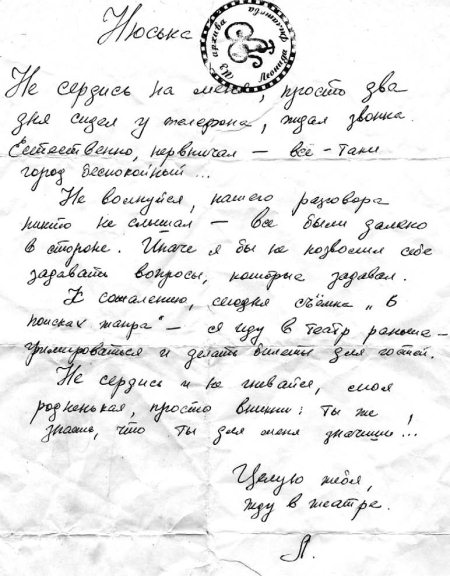 Нюська
Из архива Леонида Филатова
Не сердись на меня, просто два
дня сидел у телефона, ждал звонка.
Естественно, нервничал — всё-таки
город беспокойный...
Не волнуйся, нашего разговора
никто не слышал — все были далеко
в стороне. Иначе я бы не позволил себе
задавать вопросы, которые задавал.
К сожалению, сегодня съёмка „В
поисках жанра" — я иду в театр раньше —
гримироваться и делать билеты для гостей.
Не сердись и не гневайся, моя
родненькая, просто вникни: ты же
знаешь, что ты для меня значишь...
Целую тебя,
жду в театре.
Л.